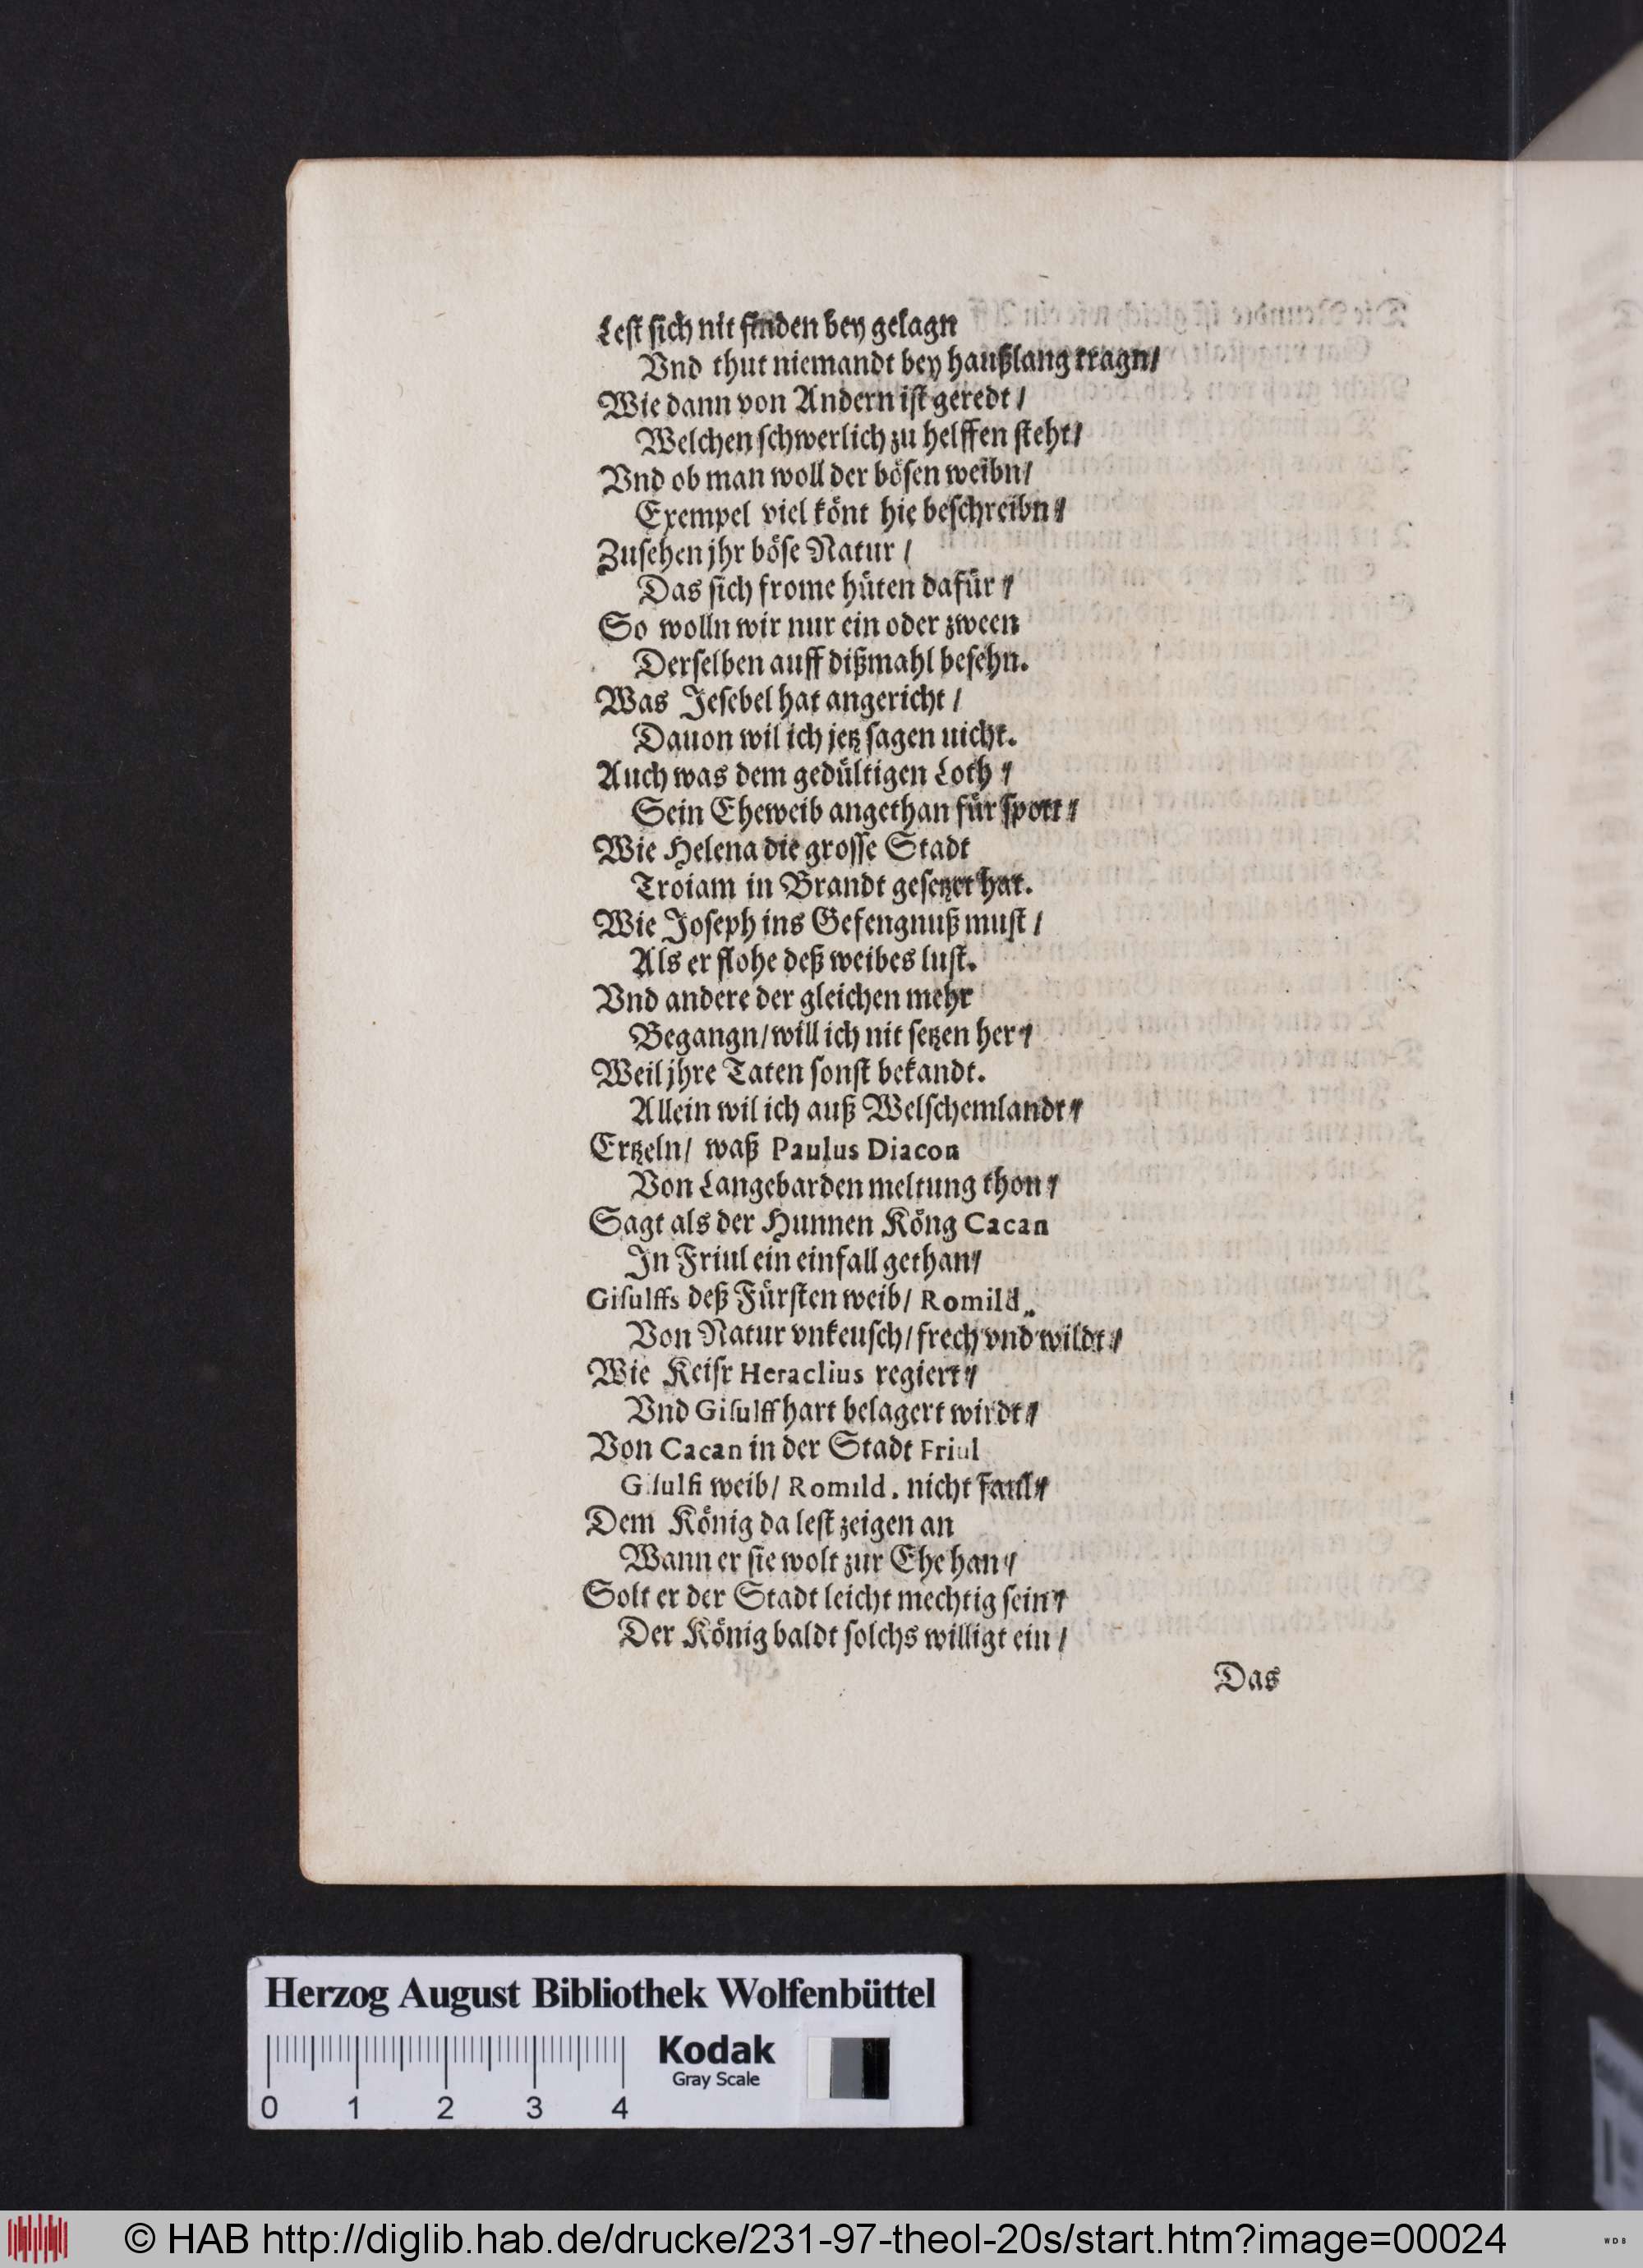 Leſt ſich nit finden bey gelagn
Vnd thut niemandt bey haußlang tragn/
Wie dann von Andern iſt geredt/
Welchen ſchwerlich zu helffen ſteht/
Vnd ob man woll der böſen weibn/
Exempel viel könt hie beſchreibn/
Zuſehen jhr böſe Natur/
Das ſich frome hüten dafür/
So wolln wir nur ein oder zween
Derſelben auff dißmahl beſehn.
Was Jeſebel hat angericht/
Dauon wil ich jetz ſagen nicht.
Auch was dem gedültigen Loth/
Sein Eheweib angethan für ſpott/
Wie Helena die groſſe Stadt
Troiam in Brandt geſetzet hat.
Wie Joſeph ins Gefengnuß muſt/
Als er flohe deß weibes luſt.
Vnd andere der gleichen mehr
Begangn/ will ich nit ſetzen her/
Weil jhre Taten ſonſt bekandt.
Allein wil ich auß Welſchemlandt/
Ertzeln/ waß Paulus Diacon
Von Langebarden meltung thon/
Sagt als der Hunnen Köng Cacan
In Friul ein einfall gethan/
Giſulffs deß Fürſten weib/ Romild.
Von Natur vnkeuſch/ frech vnd wildt/
Wie Keiſr Heraclius regiert/
Vnd Giſulff hart belagert wirdt/
Von Cacan in der Stadt Friul
Giſulfi weib/ Romild. nicht faul/
Dem König da leſt zeigen an
Wann er ſie wolt zur Ehe han/
Solt er der Stadt leicht mechtig ſein/
Der König baldt ſolchs willigt ein/
Das
Herzog August Bibliothek Wolfenbüttel
Kodak
Gray Scale
0 1 2 3 4
© HAB http://diglib.hab.de/drucke/231-97-theol-20s/start.htm?image=00024
WDB